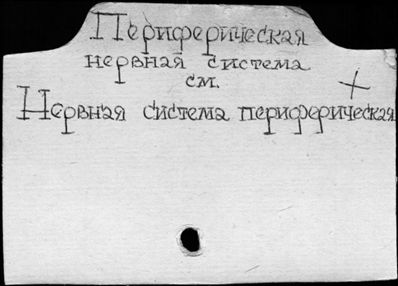 Периферическая
нервная система
см. +
Нервная система периферическая